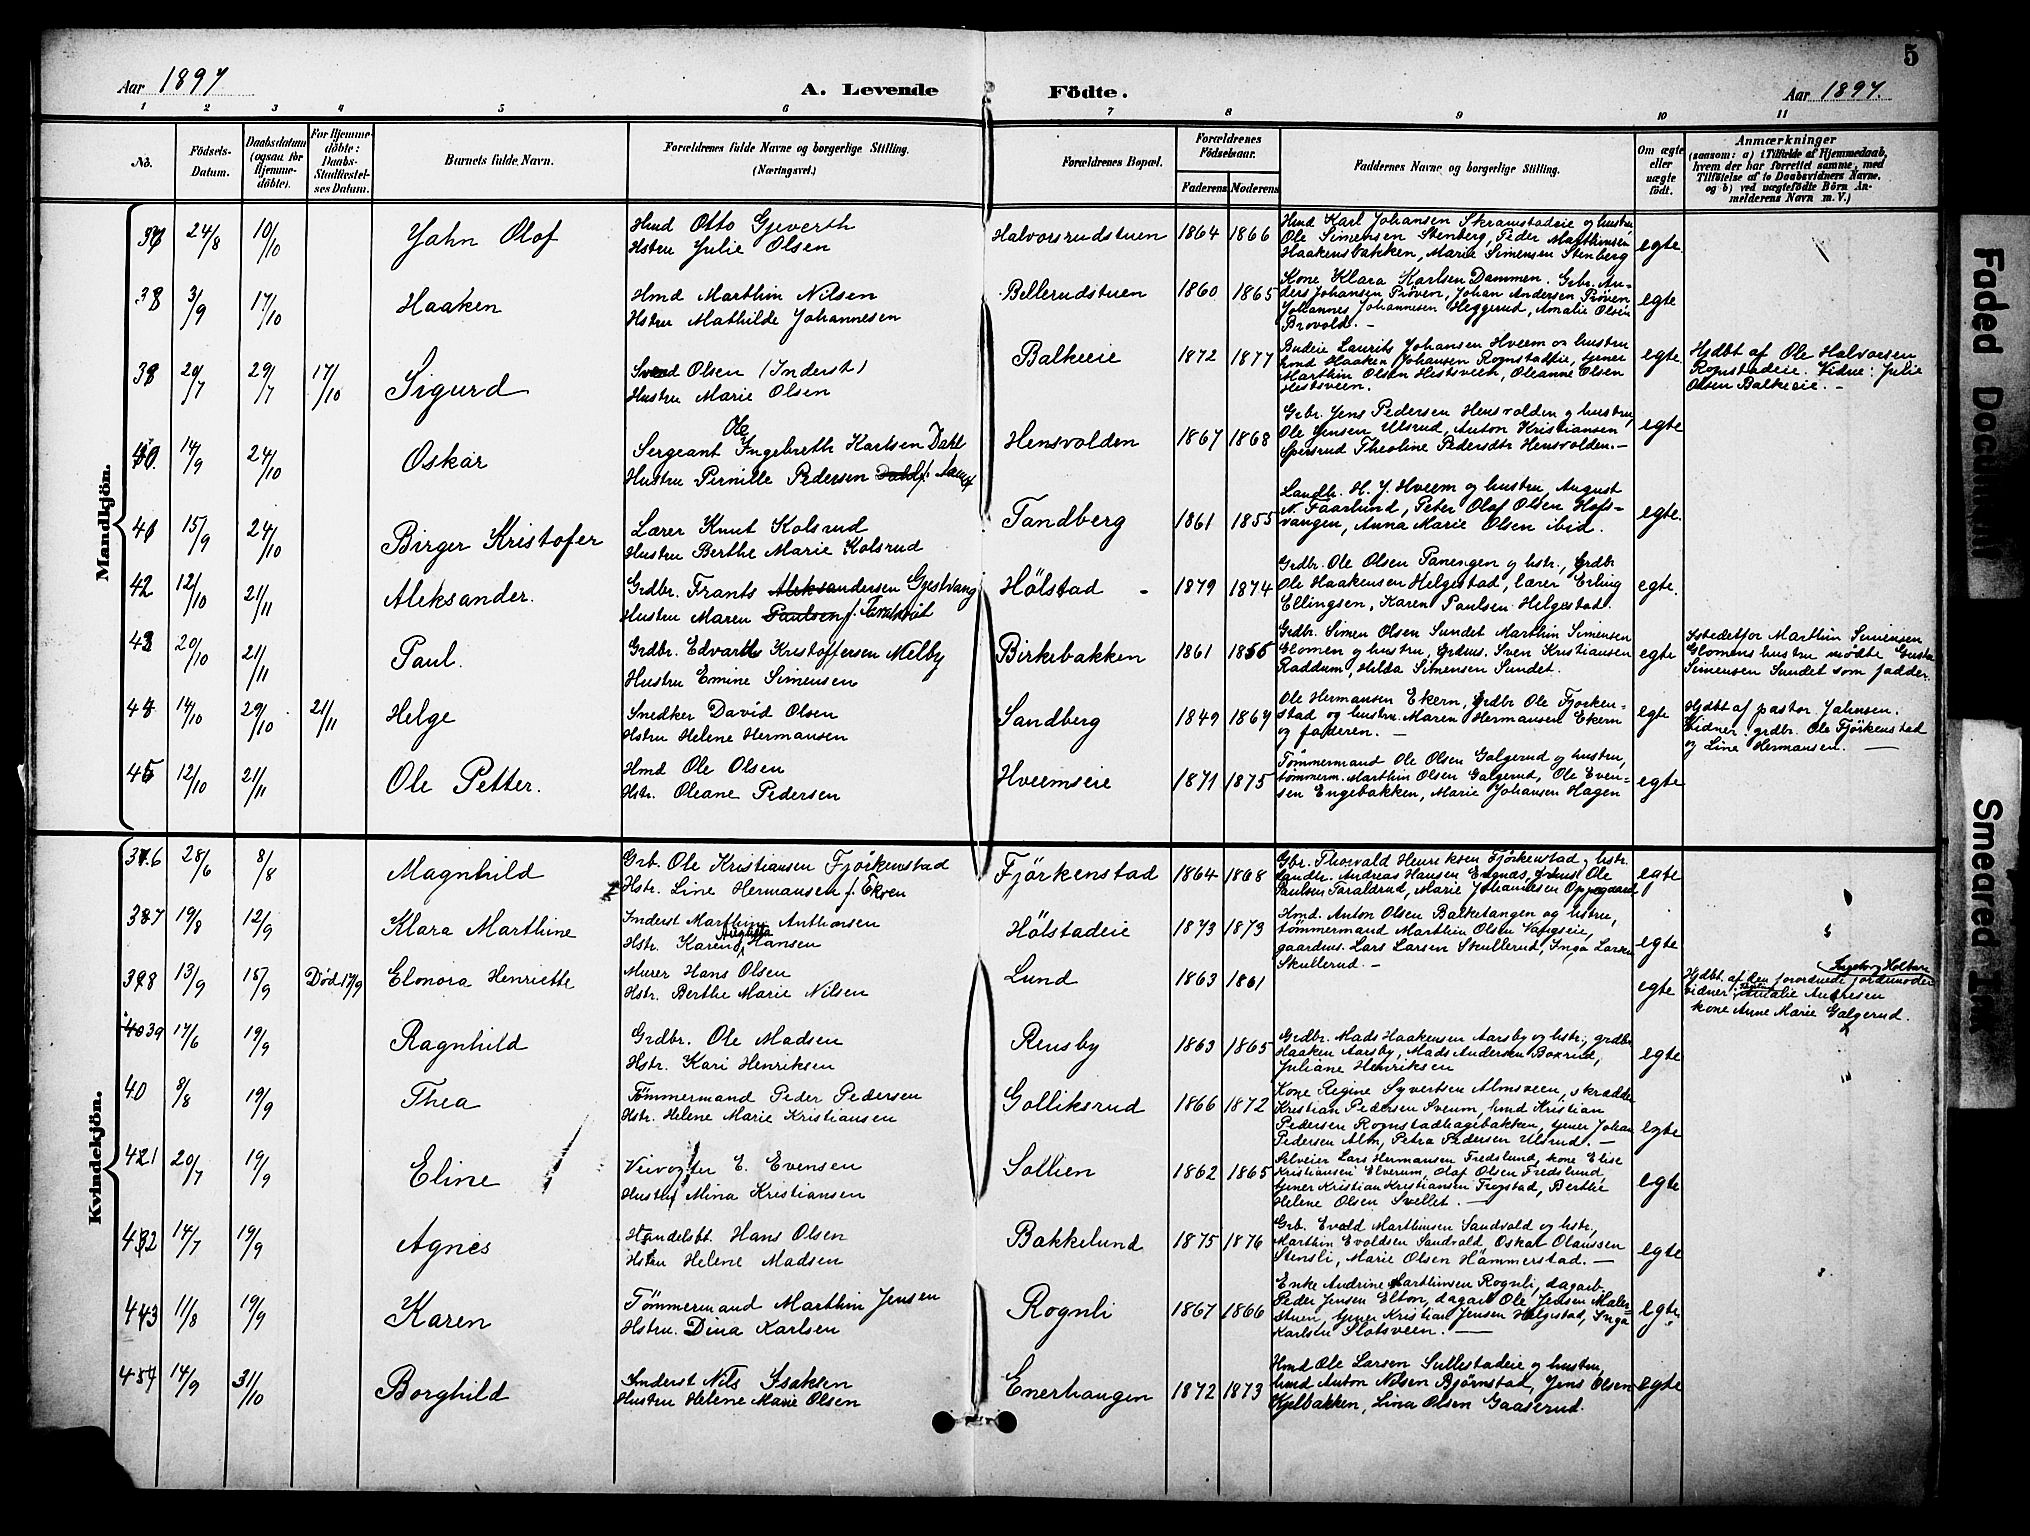 5
Aar 1897 A. Levende Födte. Aar 1897.
1 2 3 4 5 6 7 8 9 10 11
No.
Födsels-Datum.
Daabsdatum (ogsaa for Hjemmedöbte).
For Hjemmedöbte: Daabs-Stadfæstelses Datum.
Barnets fulde Navn.
Forældrenes fulde Navne og borgerlige Stilling. (Næringsvei.)
Forældrenes Bopæl.
Forældrenes Födselsaar.
Faderens Moderens
Faddernes Navne og borgerlige Stilling.
Om ægte eller uægte födt.
Anmærkninger
(saasom: a) i Tilfælde af Hjemmedaab,
hvem der har forrettet samme, med
Tilföielse af to Daabsvidners Navne.
og b) ved uægtefödte Börn An-
melderens Navn m. V.)
Mandkjön.
37 24/8 10/10 John Olof
Hmd Otto Gjeverth
Hstru Julie Olsen
Halvorsrudstuen 1864 1866
Hmd Karl Johansen Skramstadeie og hustru
Ole Simensen Stenberg, Peder Marthinsen
Haakensbakken, Marie Simensen Stenberg
egte.
38 3/9 17/10 Haaken
Hmd Marthin Nilsen
Hstru Mathilde Johannesen
Bellerudstuen 1860 1865
Kone Klara Karlsen Dammen. Grbr. An-
ders Johansen Prøven, Johan Andersen Prøven
Johannes Johannesen Heggerud, Amalie Olsen
Brovold. –
egte
29/7 29/7 17/10 Sigurd
Svend Olsen (Inderst)
Hustru Marie Olsen
Balkeeie 1872 1877
Budeie Laurits Johansen Hveem og hustru
hmd Haaken Johansen Rognstadeie, tjener
Marthin Olsen Hestsveen, Oleanne Olsen
Hestsveen.
egte
Hjdbt af Ole Halvorsen
Rognstadeie. Vidne: Julie
Olsen Balkeeie. –
40. 14/9 24/10 Oskar
Ole
Sergeant Ingebreth Karlsen Dahl
Hustru Pernille Pedersen
Hensvolden 1867 1868
Grbr. Jens Pedersen Hensvolden og hustru,
Ole Jensen Ulsrud, Anton Kristiansen
Spersrud Theoline Pedersdtr Hensvolden. –
egte
41 15/9 24/10 Birger Kristofer
Lærer Knut Kolsrud
Hustru Berthe Marie Kolsrud
Tandberg 1861 1855
Landbr. H. J. Hveem og hustru August
N. Faarlund, Peter Olaf Olsen Hofs-
vangen, Anna Marie Olsen ibid.
egte.
42 12/10 21/11 Aleksander.
Grdbr. Frants Aleksandersen Gjestvang
Hustru Maren Paulsen
Hölstad - 1879 1874
Grdbr. Ole Olsen Panengen og hstr., Grdbr
Ole Haakensen Helgestad, lærer Erling
Ellingsen, Karen Paulsen Helgestad.
egte.
43 20/10 21/11 Paul.
Grdbr. Edvard Kristoffersen Melby
Hustru Emine Simensen
Birkebakken 1861 1855
Grdbr. Simen Olsen Sundet Marthin Simensen
Glomen og hustru, Sven Kristiansen
Raddum, Helda Simensen Sundet.
egte
Istedetfor Marthin Simensen
Glomens hustru mödte Gusta
Simensen Sundet som fadder.
44 14/10 29/10 21/11 Helge
Snedker David Olsen
Hstru Helene Hermansen
Sandberg 1849 1864
Ole Hermansen Ekern, Grdbr Ole Fjørken-
stad og hustru Maren Hermansen Ekern
og faderen. –
egte
Hjdbt af pastor Johnsen.
Vidner: grdbr. Ole Fjørkenstad
og Line Hermansen. –
45 12/10 21/11 Ole Petter.
Hmd Ole Olsen
Hstr. Oleane Pedersen
Hveemseie 1871 1875
Tømmermand Ole Olsen Galgerud og hustru,
tømmerm. Marthin Olsen Galgerud, Ole Even-
sen Engebakken, Marie Johansen Hagen
egte
Kvindekjön.
36 28/6 8/8 Magnhild
Grb. Ole Kristiansen Fjørkenstad
Hstr. Line Hermansen f. Ekren
Fjörkenstad 1864 1868
Gbr. Thorvald Henriksen Fjørkenstad og hstr.
landhr. Andreas Hansen Engnæs, Ole
Paulsen Taraldrud, Marie Johannesen Oppegaard
egte
37 19/8 12/9 Klara Marthine
Inderst Marthin Anthonsen
Augusta
Hstr. Karen Hansen
Hölstadeie 1873 1873
Hmd. Anton Olsen Balketangen og hstru,
tømmermand Marthin Olsen
gaardms. Lars Larsen Skullerud, Inga Larsen
Skullerud. –
egte
38 13/9 15/9 Død 17/9 Elonora Henriette
Murer Hans Olsen
Hstr. Berthe Marie Nilsen
Lund 1863 1861
egte
Ingeborg Holtan
Hjdbt af den forordnede jordmoder
vidner: Amalie Andresen
kone Anne Marie Galgerud.
40 39 17/6 19/9 Ragnhild
Grdbr. Ole Madsen
Hstr. Kari Henriksen
Rensby 1863 1865
Grdbr. Mads Haakensen Aarsby og hstr., grdbr
Haaken Aarsby, Mads Andersen Boxrud,
Juliane Henriksen
egte
40 8/8 19/9 Thea
Tømmermand Peder Pedersen
Hstr. Helene Marie Kristiansen
Golliksrud 1866 1872
Kone Regine Syvertsen Almsveen, skrædder
Kristian Pedersen Sveum, hmd Kristian
Pedersen Rognstadhagebakken, tjener Johan
Pedersen Alm, Petra Pedersen Ulsrud. –
egte
41 20/7 19/9 Eline
Veivogter E. Evensen
Hustru Mina Kristiansen
Sollien 1862 1865
Selveier Lars Hermansen Fredslund, kone Elise
Kristiansen Elverum, Olaf Olsen Fredslund,
tjener Kristian Kristiansen Frogstad, Berthe
Helene Olsen Svellet. –
egte
42 14/7 19/9 Agnes
Handelsbt. Hans Olsen
Hstru Helene Madsen
Bakkelund 1875 1876
Grb. Evald Marthinsen Sandvold og hstr.,
Marthin Evoldsen Sandvold, Oskar Olaussen
Stensli, Marie Olsen Hammerstad. –
egte
43 11/8 19/9 Karen
Tömmermand Marthin Jensen
Hstru. Dina Karlsen
Rognli 1867 1866
Enke Andrine Marthinsen Rognli, dagarb.
Peder Jensen Elton, dagarb Ole Jensen Maler-
stuen, tjener Kristian Jensen Helgestad, Inga
Karlsen Slotsveen. –
egte
44 14/9 31/10 Borghild
Inderst Nils Isaksen
Hustru Helene Marie Olsen
Enerhaugen 1872 1873
Hmd Ole Larsen Sillestadeie og hustru,
hmd Anton Nilsen Bjørnstad, Jens Olsen
Kjelbakken, Lina Olsen Gaaserud.
egte
Faded Document
Smeared Ink